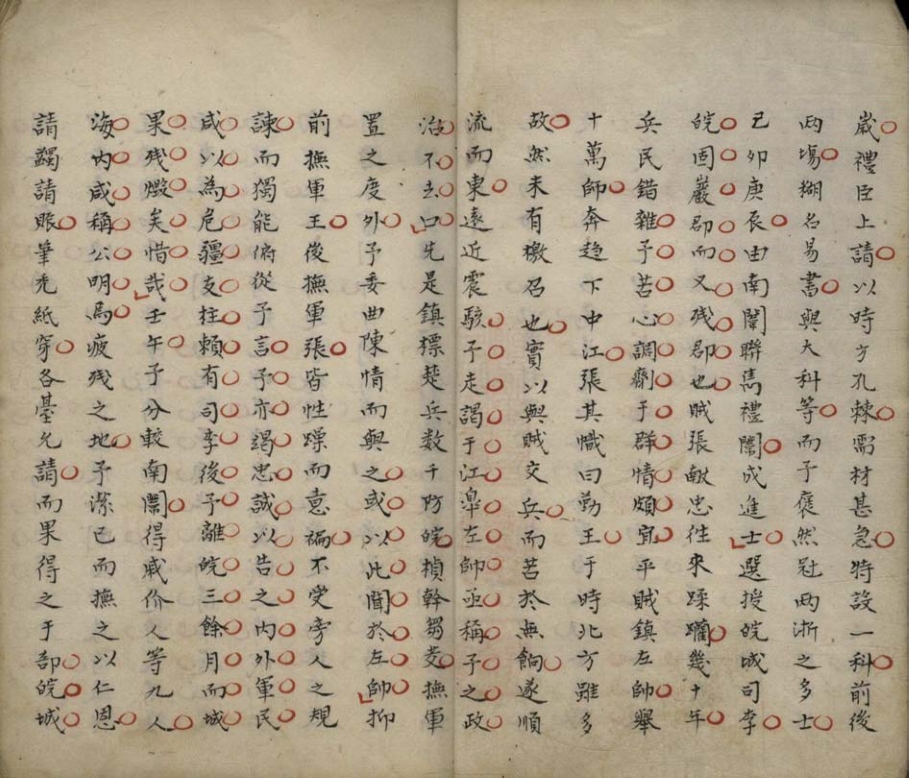 歲禮臣上請以時方孔棘需材甚急特設一科前後
两塲糊名易書與大科等而予褎然冠两浙之多士
己卯庚辰由南闈聯馬禮闈成進士選授皖城司李
皖固巖郡而又殘郡也賊張献忠徃來蹂躪幾十年
兵民錯雜予苦心調劑于群情頗宜平賊鎮左帥舉
十萬師奔趋下中江張其幟曰勤王于時北方雖多
故然未有檄召也實以與賊交兵而苦於無餉遂順
流而東遠近震駭予走謁于江臯左帥亟稱予之政
治不去口先是鎮標楚兵数千防皖楨幹芻茭撫軍
置之度外予委曲陳情而與之或以此聞於左帥抑
前撫軍王後撫軍張皆性躁而意褊不受旁人之規
諫而獨能俯從予言予亦竭忠誠以告之内外軍民
咸以為危疆支柱頼有司李後予離皖三餘月而城
果殘燬矣惜哉壬午予分較南闈得戚价人等九人
海内咸稱公明焉疲殘之地予潔己而撫之以仁恩
請蠲請賑筆秃紙穿各臺允請而果得之于部皖城